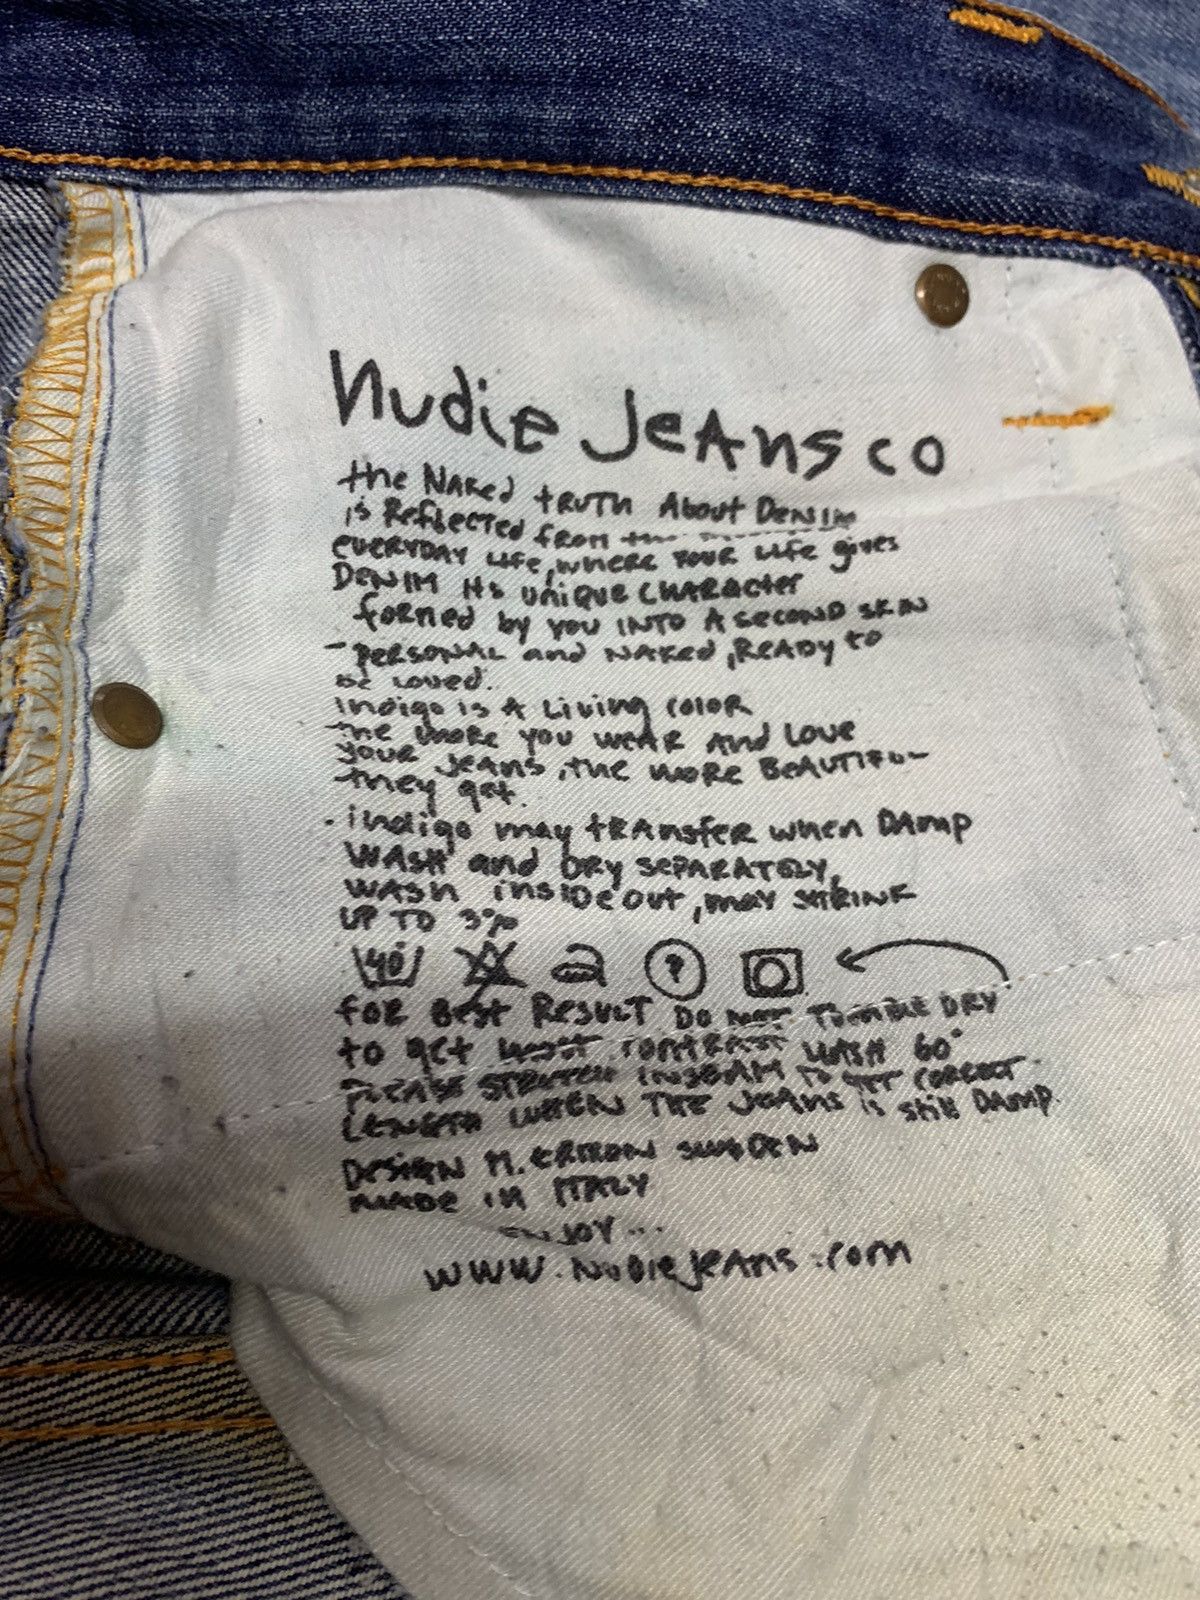 nudie Jeans co
the Naked truth About Denim
is Reflected from the
everyday Life, where your Life gives
Denim its unique character
formed by you into a second skin
- personal and naked, ready to
be loved.
indigo is a Living color
the more you wear and love
your jeans, the more beautiful
they get.
. indigo may transfer when Damp
wash and Dry separately,
wash inside out, may shrink
up to 3%
40 P
for Best Result Do not tumble dry
to get most contrast wash 60°
please stretch inseam to get correct
length when the jeans is still damp.
Design M. Erixon Sweden
made in Italy
enjoy...
www.nudiejeans.com